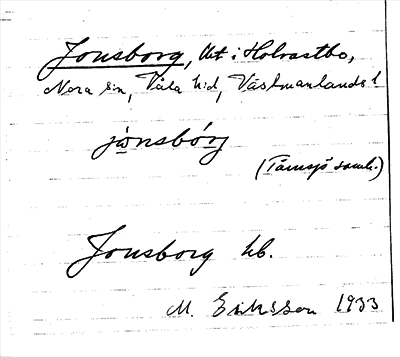 Jonsborg, lht i Holvastbo,
Nora sn, Våla hd, Västmanlands l
jonsbórj
(Tärnsjö saml.)
Jonsborg kb.
M. Eriksson 1933